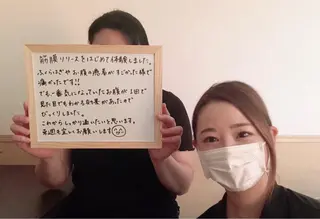 筋膜リリースをはじめて体験しました。
ふくらはぎやお腹の癒着がすごかった様で
痛かったです!!
でも一番気になっていたお腹が1回で
見た目でもわかる効果があったので
びっくりしました。
これからしっかり通いたいと思います。
来週も宜しくお願いします